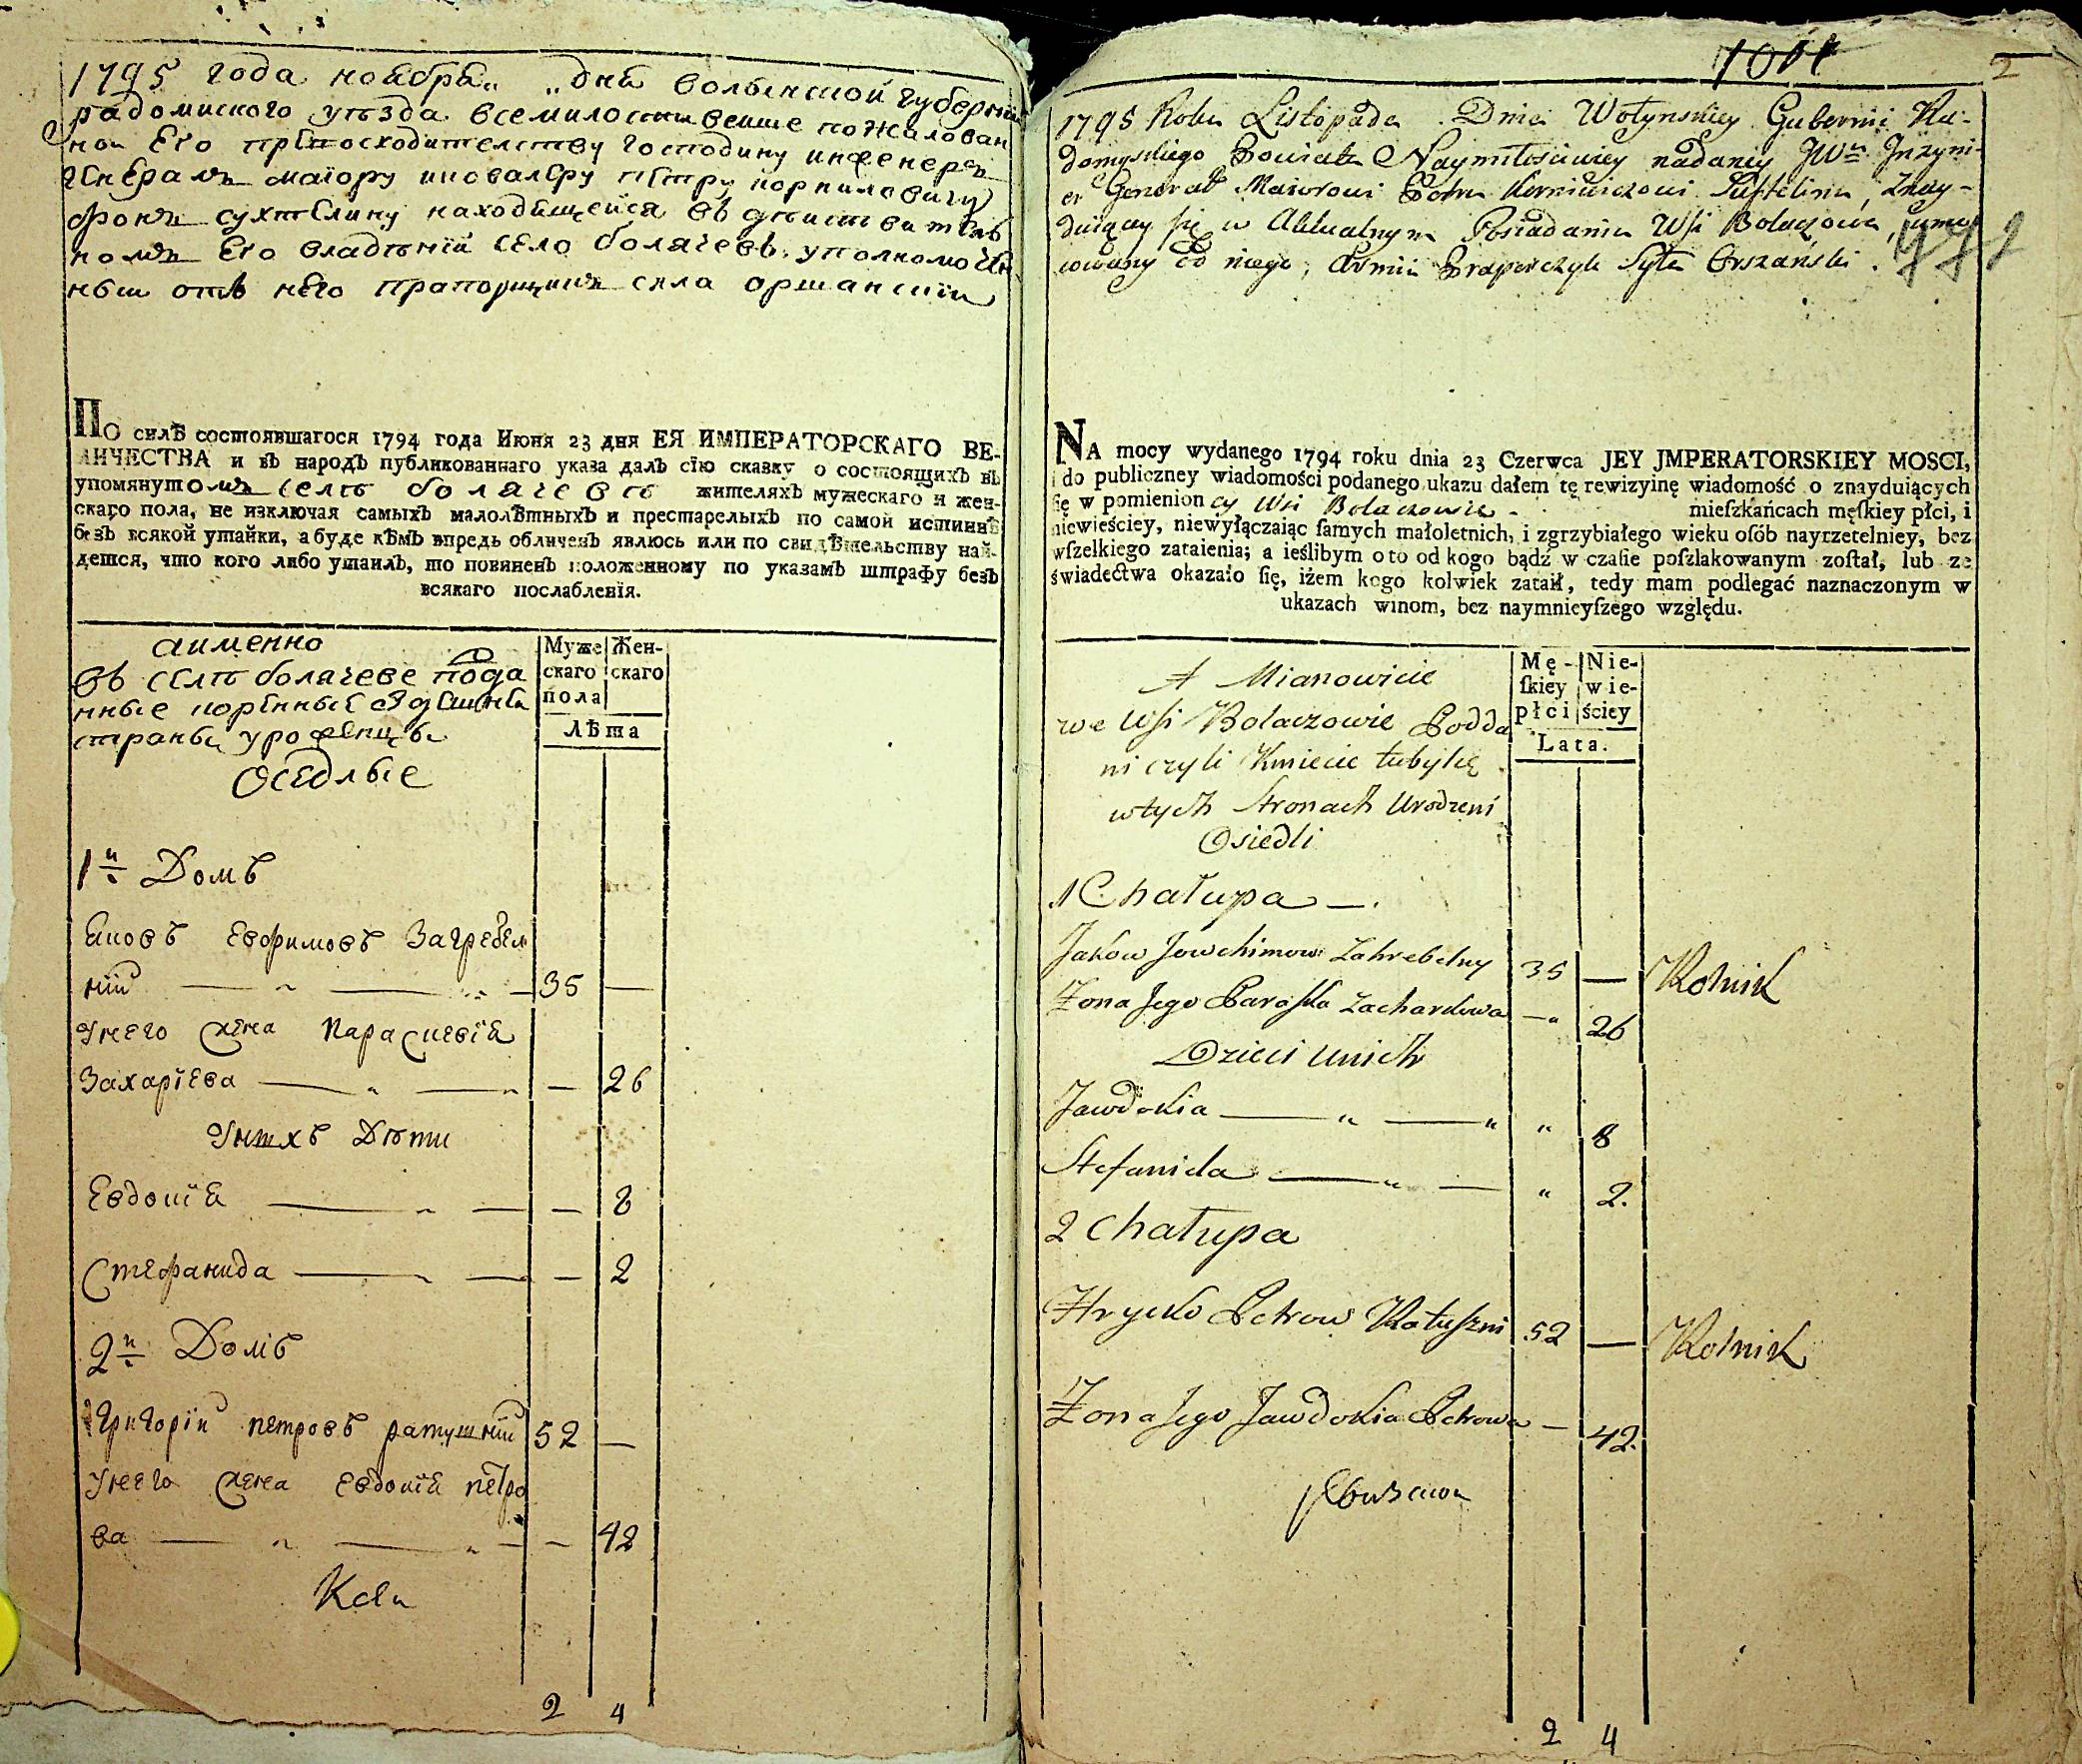 1795 года ноября „ „ дня волынской губернии
радомиского уѣзда всемилостивейше пожалован
ной Его превосходителству господину инженеръ
генералъ маіору и кавалеру петру корниловичу
фонъ сухтелину находящейся въ дѣиствител
номъ Его владѣнии село болячевъ, уполномочен
ныи отъ него прапорщикъ сила оршанскіи
По силѢ состоявшагося 1794 года Июня 23 дня ЕЯ ИМПЕРАТОРСКАГО ВЕ-
ЛИЧЕСТВА и въ народъ публикованнаго указа далъ сїю сказку о состоящихъ въ
упомянутомъ селѣ болячевѣ жителяхъ мужескаго и жен-
скаго пола, не изключая самыхъ малолѣтныхъ и престарелыхъ по самой истиннѣ
безъ всякой утайки, а буде кѣмъ впредь обличенъ явлюсь или по свидѣтельству най-
дется, что кого либо утаилъ, то повиненъ положенному по указамъ штрафу безъ
всякаго послабленїя.
аименно
въ селѣ болячеве подда
нные коренные здешнея
страны уроженцы
Оседлые
Муже
скаго
пола
Жен-
скаго
лѢта
1й Домъ
Яковъ Евфимовъ Загребел
нїй 35 —
Унего жена Параскевїя
Захарїева — 26
Унихъ Дѣти
Евдокїя — 8
Стефанида — 2
2й Домъ
Григорїй петровъ ратушнїй 52 —
Унего жена Евдокїя петро
ва — 42
2 4
2
1795 Roku Listopada Dnia Wołynskiey Gubernii Ra-
domyskiego Powiatu Naymiłościwiey nadaney JWu Jnżyni-
er Generał Maiorowi Piotru Korniłowiczowi Suchtelinu, Znay-
duiącey się w Aktualnym Posiadaniu Wsi Bolaczowa, umoc
owany od niego, Armii Praporczyk Syła Orszański.
771
NA mocy wydanego 1794 roku dnia 23 Czerwca JEY JMPERATORSKIEY MOSCI,
i do publiczney wiadomości podanego ukazu dałem tę rewizyinę wiadomość o znayduiących
ſię w pomienioncy Wsi Bolaczowie mieſzkańcach męſkiey płci, i
niewieściey, niewyłączaiąc ſamych małoletnich, i zgrzybiałego wieku oſób nayrzetelniey, bez
wſzelkiego zataienia; a ieślibym o to od kogo bądź w czaſie poſzlakowanym zoſtał, lub ze
świadectwa okazało ſię, iżem kogo kolwiek zataił, tedy mam podlegać naznaczonym w
ukazach winom, bez naymnieyſzego względu.
A Mianowicie
we Wsi Bolaczowie Podda
ni czyli Kmiecie tubylcę
wtych Stronach Urodzeni
Osiedli
Mę-
ſkiey
płci
Nie-
wie-
ściey
Lata.
1 Chałupa —.
Jakow Jowchimow Zahrebelny 35 — Rolnik
Żona Jego Paraska Zacharkowa — 26
Dzieci Unich
Jawdokia — „ — „ „ 8
Stefanida — „ — „ 2.
2 Chałupa
Hrycko Petrow Ratuszni 52 — Rolnik
Żona Jego Jawdokia Petrowa — 42.
2 4